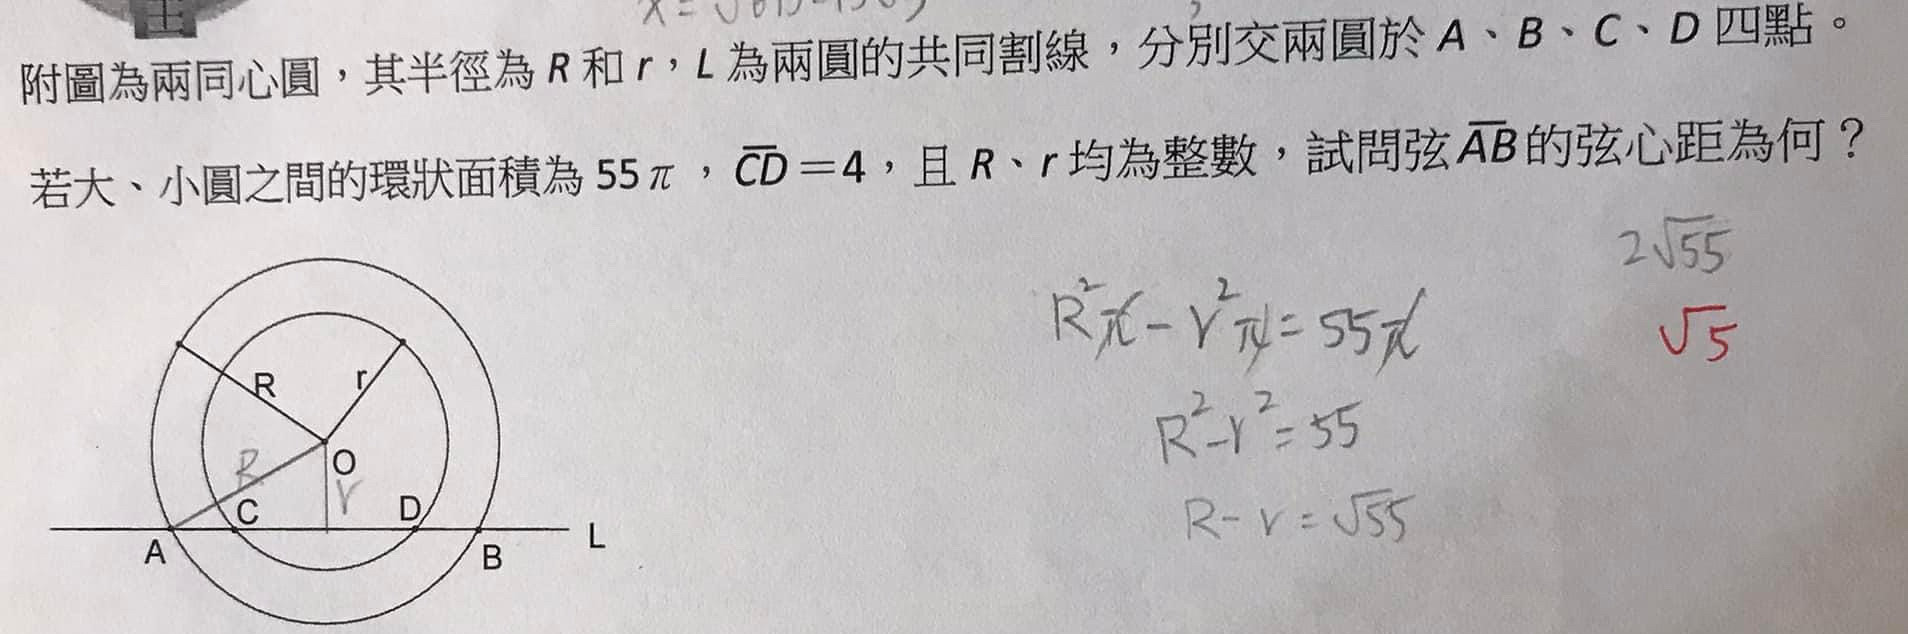 附圖為兩同心圓，其半徑為 R 和 r，L 為兩圓的共同割線，分別交兩圓於 A、B、C、D 四點。
若大、小圓之間的環狀面積為 55π，CD＝4，且 R、r 均為整數，試問弦 AB 的弦心距為何？
2√55
√5
R²π - r²π = 55π
R² - r² = 55
R - r = √55
R
r
R
O
r
C
D
A
B
L